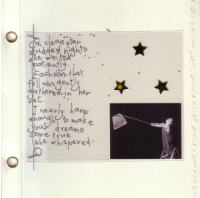 On clear star
studded nights
she waited
patiently.
Each star that
fell was gently
gathered in her
net.
I nearly have
enough to make
your dreams
come true
she whispered.